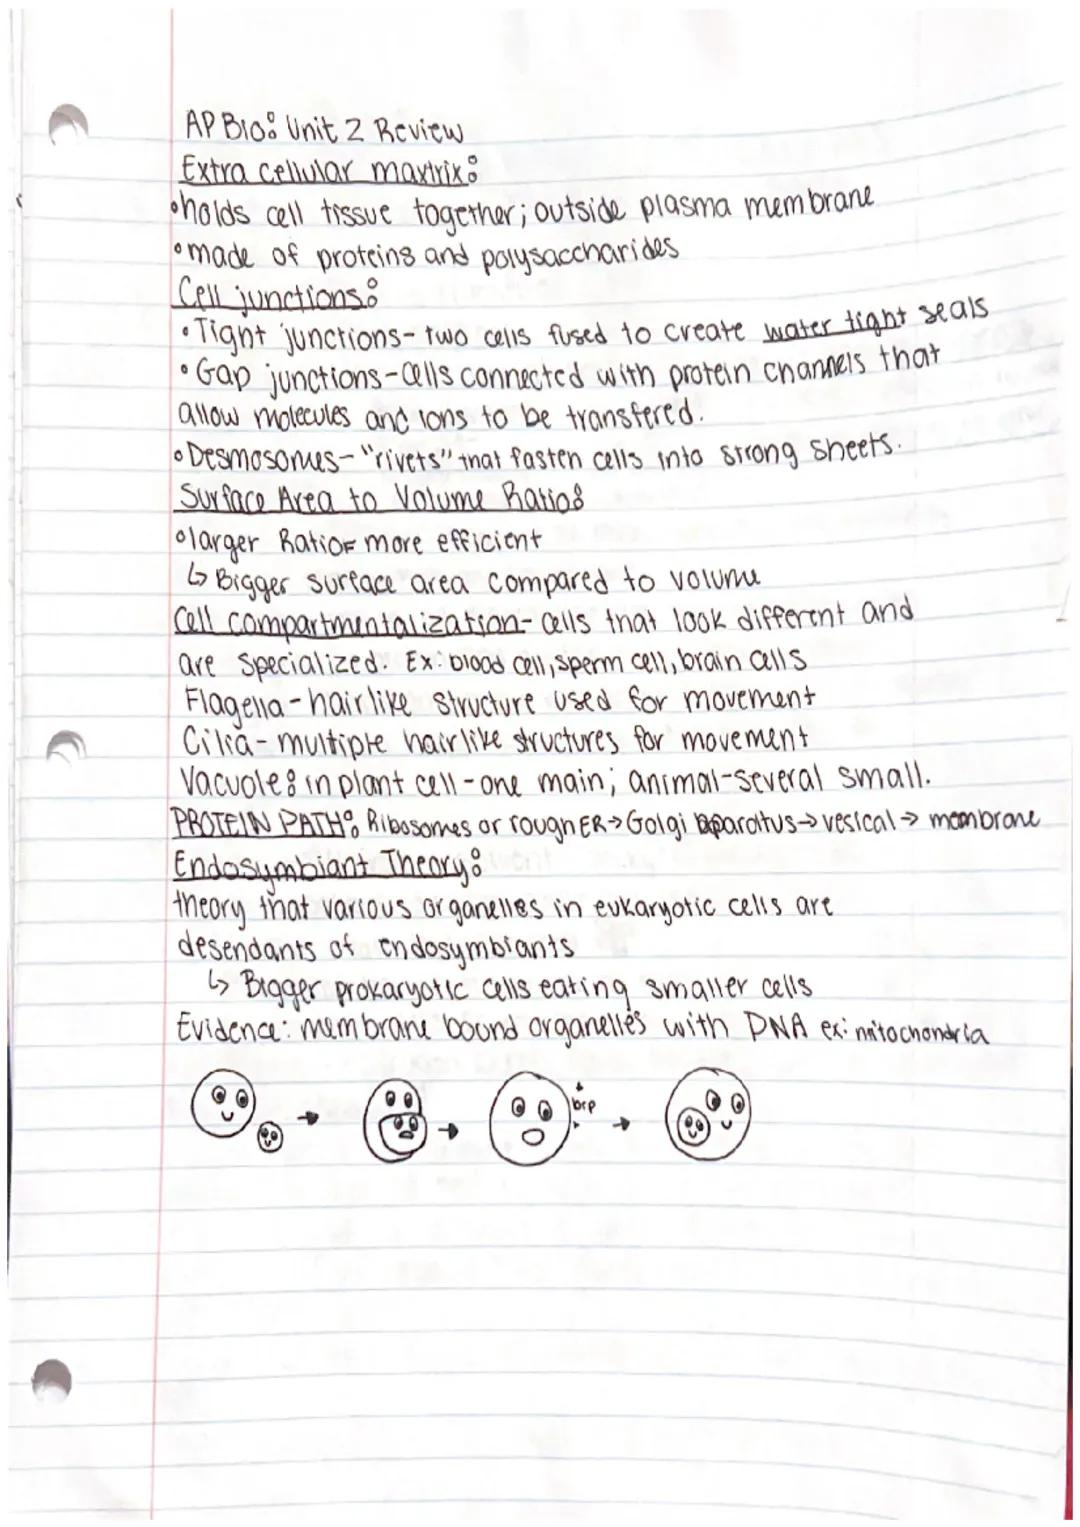 AP Bio: Unit 2 Review
Extra cellular maxtrix:
•holds cell tissue together; outside plasma membrane
•made of proteins and polysaccharides
Cell junctions:
•Tight junctions- two cells fused to create water tight seals
•Gap junctions-cells connected with protein channels that
allow molecules and ions to be transfered.
•Desmosomes- "rivets" that fasten cells into strong sheets.
Surface Area to Volume Ratio:
•larger Ratio= more efficient
↳ Bigger surface area compared to volume
Cell compartmentalization- cells that look different and
are specialized. Ex: blood cell, sperm cell, brain cells
Flagella - hairlike structure used for movement
Cilia- multiple hairlike structures for movement
Vacuole: in plant cell - one main; animal-several small.
PROTEIN PATH: Ribosomes or rough ER→Golgi aparatus→vesical→ membrane
Endosymbiant Theory:
theory that various organelles in eukaryotic cells are
desendants of endosymbiants
↳ Bigger prokaryotic cells eating smaller cells
Evidence: membrane bound organelles with DNA ex: mitochondria
brp